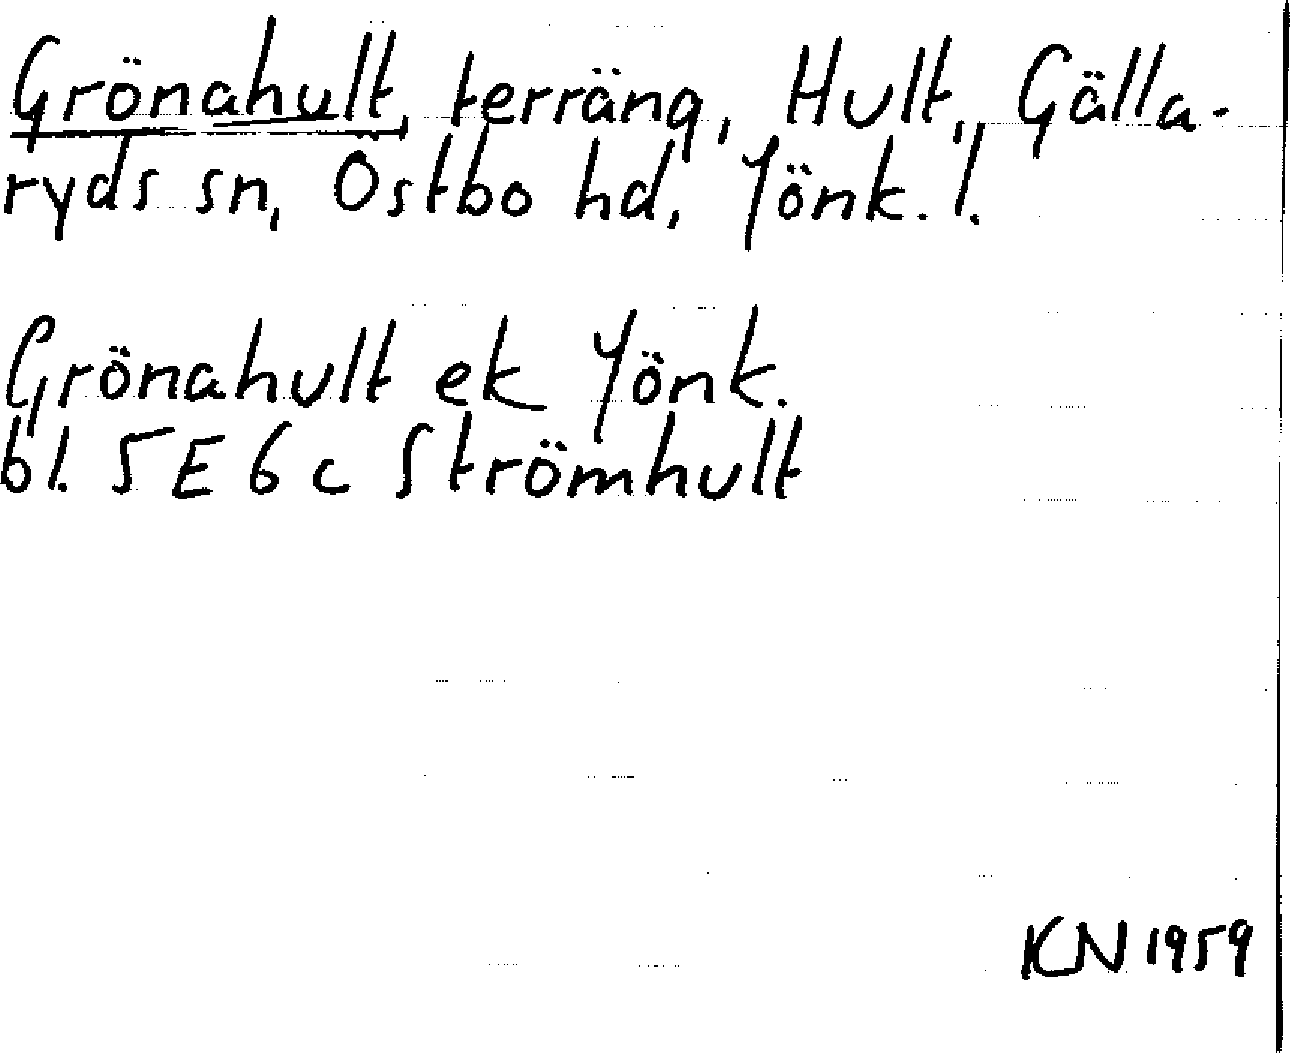 Grönahult, terräng, Hult, Gälla-
ryds sn, Östbo hd, Jönk. l.
Grönahult ek Jönk.
bl. 5E 6c Strömhult
KN 1959